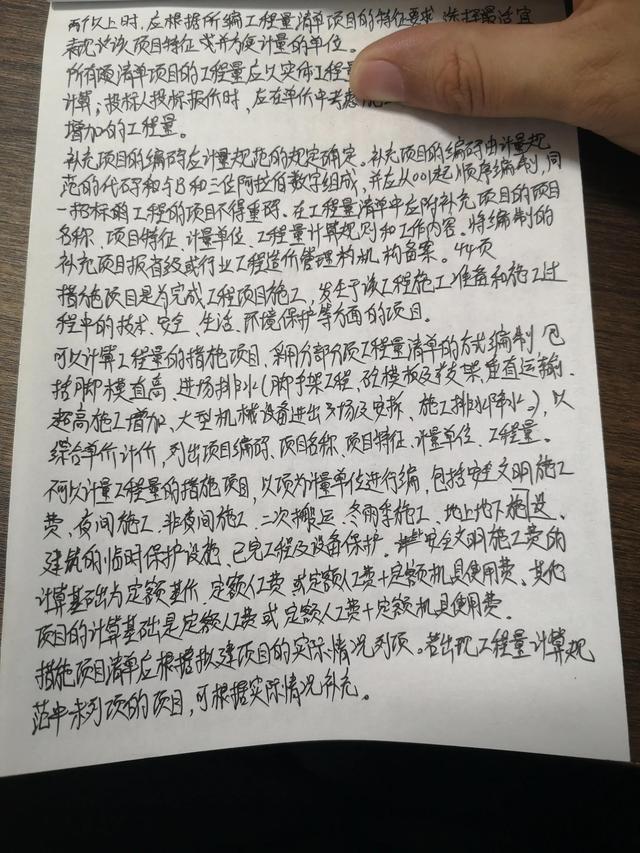 两个以上时,应根据所编工程量清单项目的特征要求,选择最适宜
表现该项目特征或并方便计量的单位。
所有顺清单项目的工程量应以实体工程量
计算;投标人投标报价时、应在单价中考虑
增加的工程量。
补充项目的编码应计量规范的规定确定。补充项目的编码由计量规
范的代码和与B和三位阿拉伯数字组成,并应从001起顺序编制,同
一招标的工程的项目不得重码。在工程量清单中应附补充项目的项目
名称、项目特征、计量单位、工程量计算规则和工作内容。将编制的
补充项目报省级或行业工程造价管理机构备案。44页
措施项目是为完成工程项目施工,发生于该工程施工准备和施工过
程中的技术、安全、生活、环境保护等方面的项目。
可以计算工程量的措施项目,采用分部分项工程量清单的方式编制(包
括脚模直高、进场排水(脚手架工程、砼模板及支架,垂直运输、
超高施工增加、大型机械设备进出场及安拆、施工排水降水。),以
综合单价计价,列出项目编码、项目名称、项目特征、计量单位、工程量。
不可以计量工程量的措施项目,以项为计量单位进行编,包括安全文明施工
费、夜间施工、非夜间施工、二次搬运、冬雨季施工、地上地下施设、
建筑的临时保护设施、已完工程及设备保护。安全文明施工费的
计算基础为定额基价、定额人工费 或定额人工费+定额机具使用费、其他
项目的计算基础是定额人工费或 定额人工费+定额机具使用费.
措施项目清单应根据拟建项目的实际情况列项。若出现工程量计算规
范中未列项的项目,可根据实际情况补充。